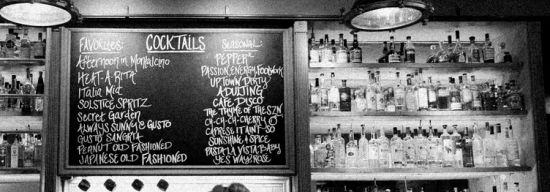 COCKTAILS
FAVORITES:
Afternoon in Montalcino
HEAT-A RITA
Italia Mia
SOLSTICE SPRITZ
Secret Garden
ALWAYS SUNNY & GUSTO
GUSTO SANGRIA
PEANUT OLD FASHIONED
JAPANESE OLD FASHIONED
SEASONAL:
PEPPER
PASSION, ENERGY, Footwork
UPTOWN DIRTY
ADULTING
CAFE DISCO
THE THYME OF THE SZN
CH-CH-CH-CHERRY
CAPRESE IT AIN'T SO
SUNSHINE & SPICE
PASTA LA VISTA, BABY
YES WAY ROSE